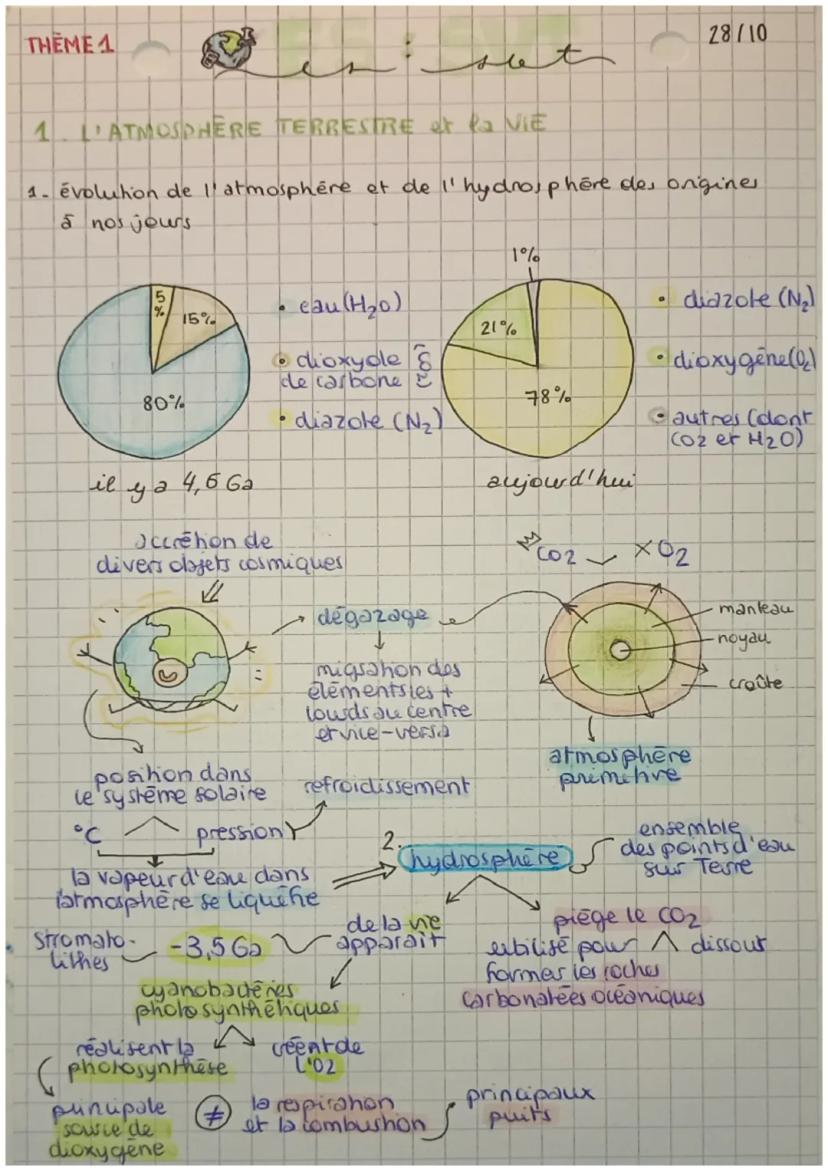 THÈME 1
es : svt
28/10
1. L'ATMOSPHÈRE TERRESTRE et la VIE
1- évolution de l'atmosphère et de l'hydrosphère des origines
à nos jours
5%
15%
80%
• eau (H2O)
• dioxyde
de carbone
• diazote (N2)
il y a 4,6 Ga
1%
21%
78%
• diazote (N2)
• dioxygène (O2)
• autres (dont
CO2 et H2O)
aujourd'hui
accrétion de
divers objets cosmiques
CO2
X O2
→ dégazage
manteau
noyau
croûte
migration des
éléments les +
lourds au centre
et vice-versa
atmosphère
primitive
position dans
le système solaire
refroidissement
°C
pression
la vapeur d'eau dans
l'atmosphère se liquéfie
2.
hydrosphère
ensemble
des points d'eau
sur Terre
de la vie
apparait
piège le CO2
utilisé pour
dissout
former les roches
carbonatées océaniques
stromato-
lithes
-3,5 Ga
cyanobactéries
photosynthétiques
réalisent la
photosynthèse
créent de
L'O2
principale
source de
dioxygène
≠
la respiration
et la combustion
principaux
puits